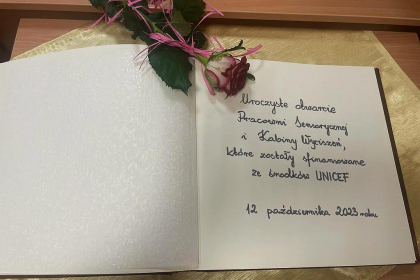 Uroczyste otwarcie
Pracowni Sensorycznej
i Kabiny Wyciszeń,
które zostały sfinansowane
ze środków UNICEF
12 października 2023 roku